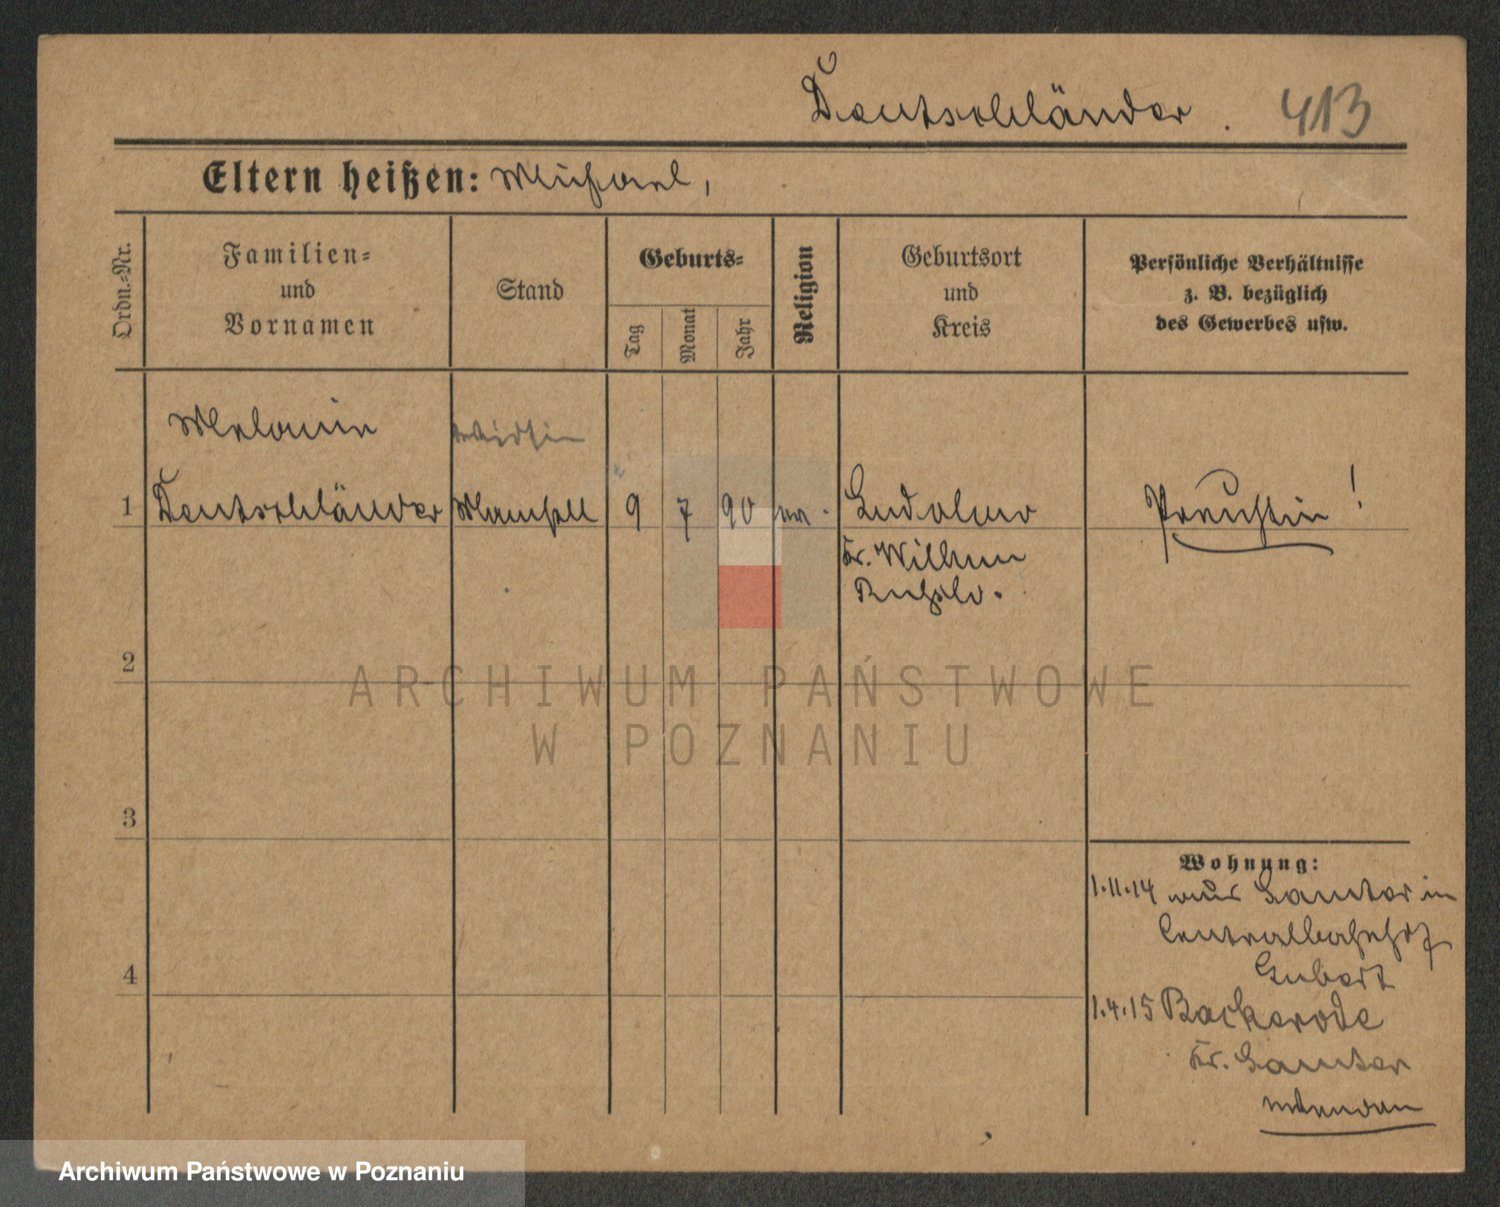 Deutschländer. 413
Eltern heißen: Michael,
Ordn.-Nr.
Familien-
und
Vornamen
Stand
Geburts-
Tag
Monat
Jahr
Religion
Geburtsort
und
Kreis
Persönliche Verhältnisse
z. B. bezüglich
des Gewerbes usw.
Melanie
1 Deutschländer Mamsell 9 7 90
Kr. Wilhm
Preussin!
2
3
4
Wohnung:
1.11.14 aus Samter in
Centralbahnhof
1.4.15 Backerode
Kr. Samter
ARCHIWUM PAŃSTWOWE
W POZNANIU
Archiwum Państwowe w Poznaniu